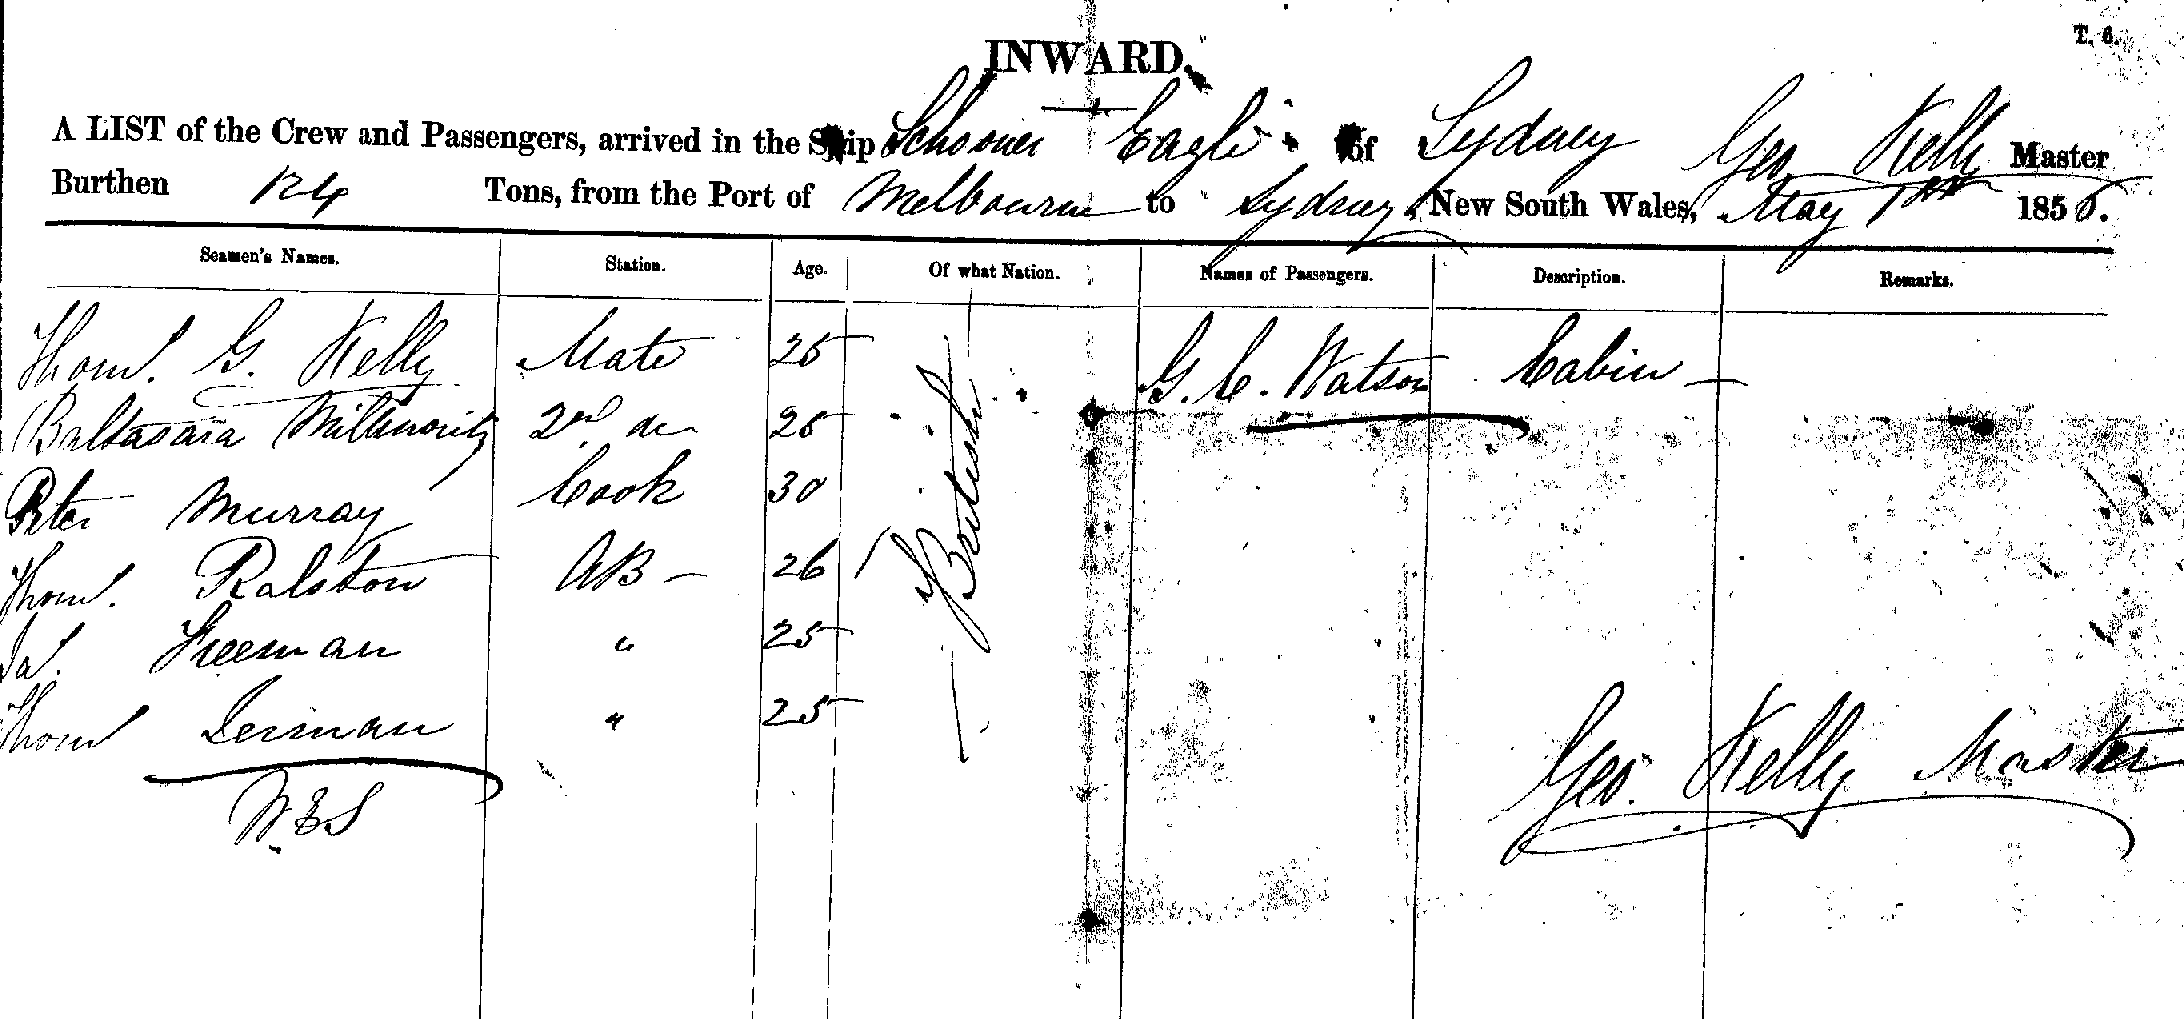 T. 6.
INWARD.
A LIST of the Crew and Passengers, arrived in the Ship Schooner Eagle of Sydney Geo Kelly Master
Burthen 124 Tons, from the Port of Melbourne to Sydney New South Wales, May 1st 1856.
Seamen's Names. Station. Age. Of what Nation. Names of Passengers. Description. Remarks.
Thos. G. Kelly Mate 25 British G. C. Watson Cabin
Baltasara 2nd do 25
Peter Murray Cook 30
Thos. Ralston AB 26
Jas. Freeman " 25
Thos " 25
Geo. Kelly Master